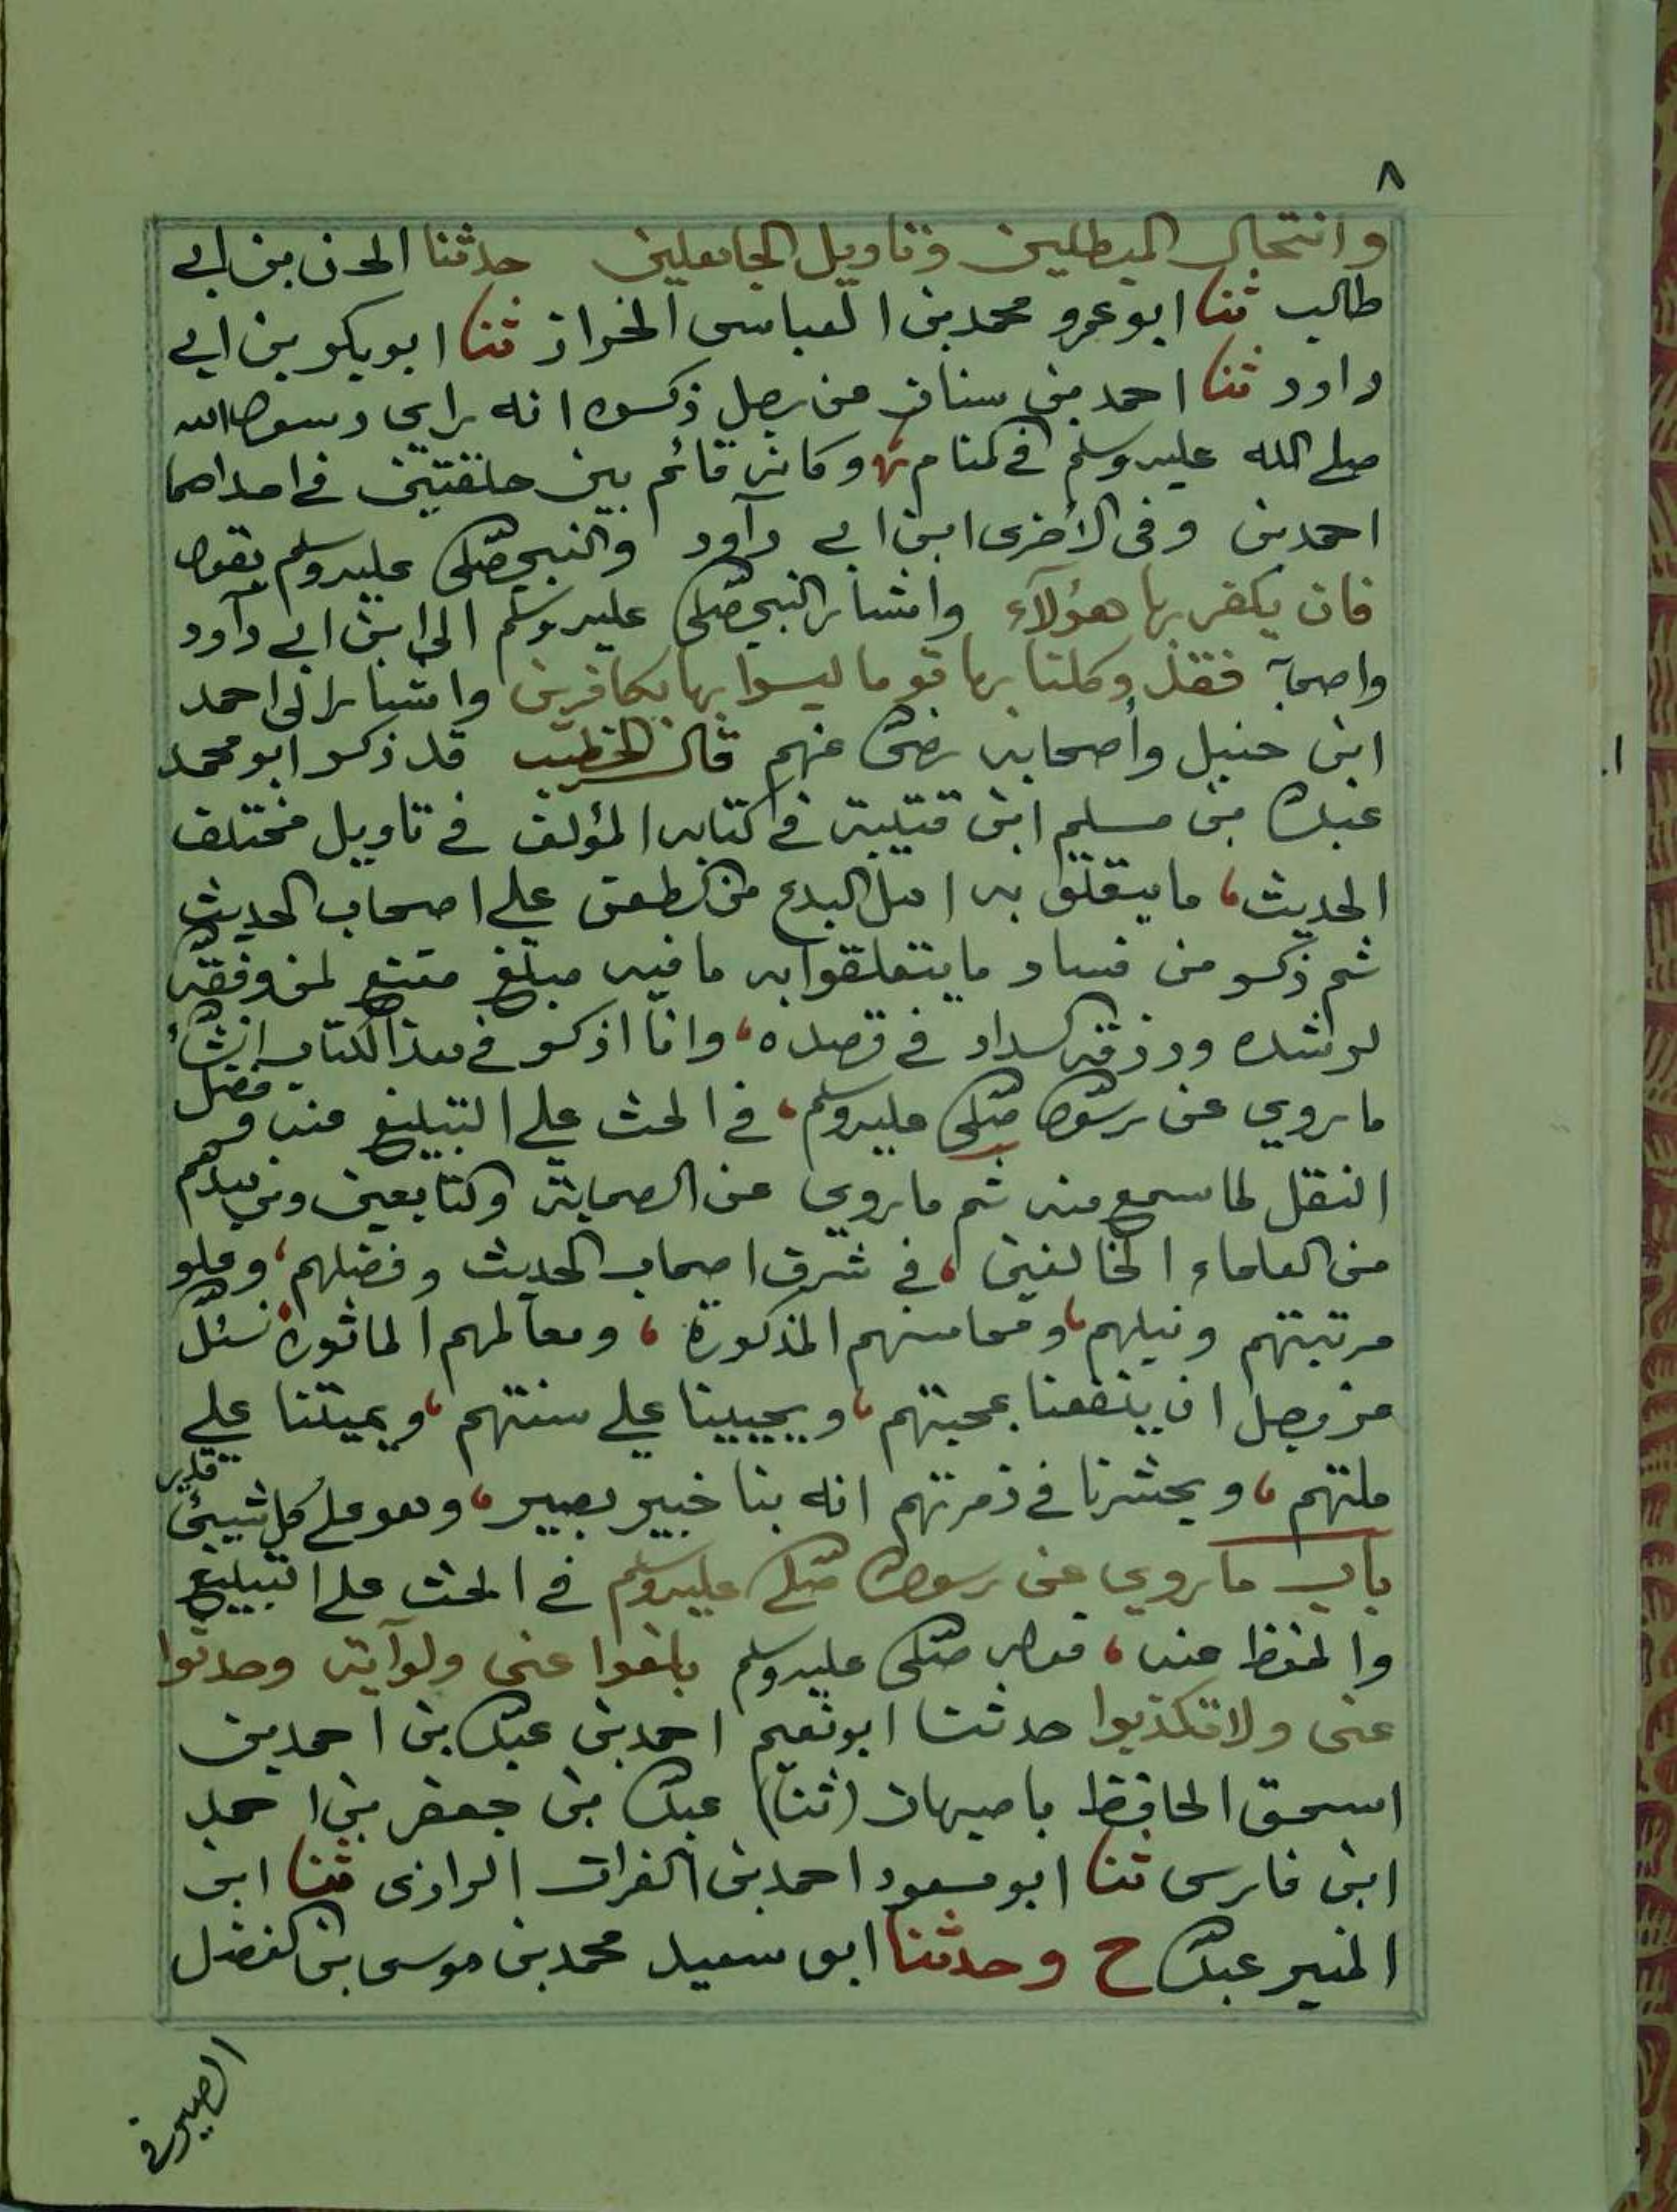 ٨
وانتحال المبطلين وتاويل الجاهلين حدثنا الحسن بن ابي
طالب ثنا ابو عمرو محمد بن العباس الخزاز ثنا ابو بكر بن ابي
داود ثنا احمد بن سنان من رجل ذكره انه راى رسول الله
صلى الله عليه وسلم في المنام وكان قائم بين حلقتين في احداهما
احمد بن وفى الأخرى ابن ابي دآود والنبي صلى عليه وسلم يقول
فان يكفر بها هؤلآء واشار النبي صلى عليه وسلم الى ابن ابي دآود
واصحابه فقد وكلنا بها قوما ليسوا بها بكافرين واشار الى احمد
ابن حنبل وأصحابه رضى عنهم قال الخطيب قد ذكر ابو محمد
عبدالله بن مسلم ابن قتيبة في كتابه المؤلف في تاويل مختلف
الحديث، ما يتعلق به اهل البدع من الطعن على اصحاب الحديث
ثم ذكر من فساد ما يتعلقوا به ما فيه مبلغ مقنع لمن وفقه
لرشده ورزقه السداد في قصده، وانا اذكر في هذا الكتاب انشاء
ما روي عن رسول صلى عليه وسلم، في الحث على التبليغ عنه وفضل
النقل لما سمع منه ثم ما روي عن الصحابة والتابعين ومن بعدهم
من العلماء الخالفين، في شرف اصحاب الحديث وفضلهم، وعلو
مرتبتهم ونبلهم، ومحاسنهم المذكورة، ومعالمهم الماثورة نسئل
عز وجل ان ينفعنا بمحبتهم، ويحيينا على سنتهم، ويميتنا على
ملتهم، ويحشرنا في زمرتهم انه بنا خبير بصير، وهو على كل شيئ قدير
باب ما روي عن رسول صلى عليه وسلم في الحث على التبليغ
والحفظ عنه، قوله صلى عليه وسلم بلغوا عنى ولو آية وحدثوا
عنى ولا تكذبوا حدثنا ابو نعيم احمد بن عبدالله بن احمد بن
اسحق الحافظ باصبهان (ثنا) عبدالله بن جعفر بن احمد
ابن فارس ثنا ابو مسعود احمد بن الفرات الرازى ثنا ابن
المنير عبدالله ح وحدثنا ابو سعيد محمد بن موسى بن الفضل
الصيرفي